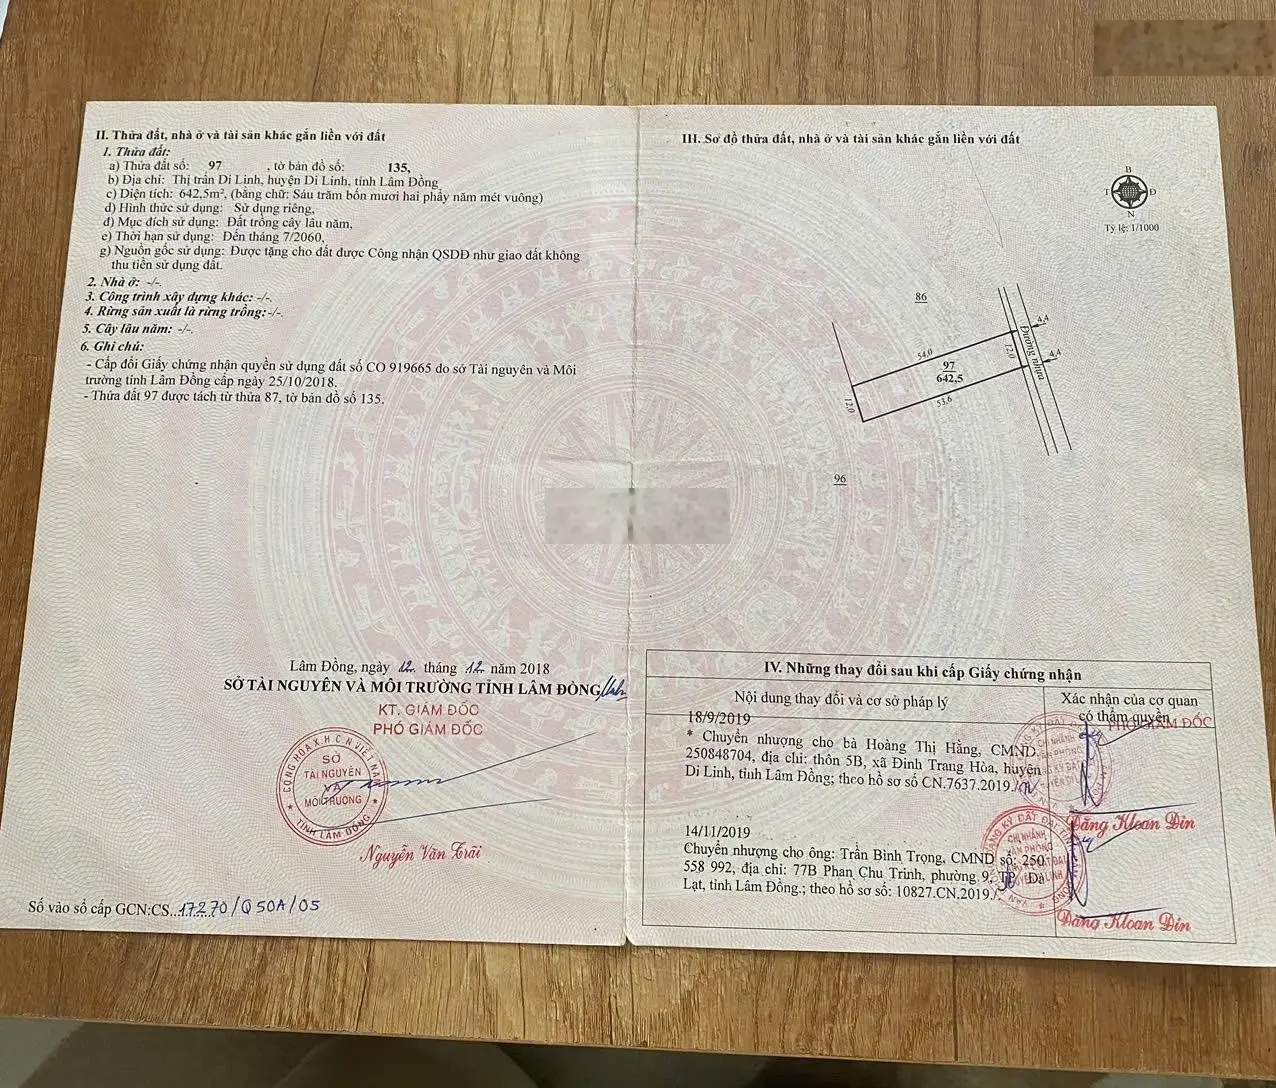 II. Thửa đất, nhà ở và tài sản khác gắn liền với đất
1. Thửa đất:
a) Thửa đất số: 97 , tờ bản đồ số: 135,
b) Địa chỉ: Thị trấn Di Linh, huyện Di Linh, tỉnh Lâm Đồng
c) Diện tích: 642,5m², (bằng chữ: Sáu trăm bốn mươi hai phẩy năm mét vuông)
d) Hình thức sử dụng: Sử dụng riêng,
đ) Mục đích sử dụng: Đất trồng cây lâu năm,
e) Thời hạn sử dụng: Đến tháng 7/2060,
g) Nguồn gốc sử dụng: Được tặng cho đất được Công nhận QSDĐ như giao đất không
thu tiền sử dụng đất.
2. Nhà ở: -/-.
3. Công trình xây dựng khác: -/-.
4. Rừng sản xuất là rừng trồng:-/-.
5. Cây lâu năm: -/-.
6. Ghi chú:
- Cấp đổi Giấy chứng nhận quyền sử dụng đất số CO 919665 do sở Tài nguyên và Môi
trường tỉnh Lâm Đồng cấp ngày 25/10/2018.
- Thửa đất 97 được tách từ thửa 87, tờ bản đồ số 135.
Lâm Đồng, ngày 12 tháng 12 năm 2018
SỞ TÀI NGUYÊN VÀ MÔI TRƯỜNG TỈNH LÂM ĐỒNG
KT. GIÁM ĐỐC
PHÓ GIÁM ĐỐC
CỘNG HÒA X.H.C.N VIỆT NAM
SỞ
TÀI NGUYÊN
VÀ
MÔI TRƯỜNG
TỈNH LÂM ĐỒNG
Nguyễn Văn Trãi
Số vào sổ cấp GCN:CS...17270/Q50A/05
III. Sơ đồ thửa đất, nhà ở và tài sản khác gắn liền với đất
B
T Đ
N
Tỷ lệ: 1/1000
86
4,4
Đường nhựa
12,0
54,0
4,4
97
642,5
53,6
12,0
96
IV. Những thay đổi sau khi cấp Giấy chứng nhận
Nội dung thay đổi và cơ sở pháp lý
Xác nhận của cơ quan
có thẩm quyền
18/9/2019
PHÓ GIÁM ĐỐC
* Chuyển nhượng cho bà Hoàng Thị Hằng, CMND
250848704, địa chỉ: thôn 5B, xã Đinh Trang Hòa, huyện
Di Linh, tỉnh Lâm Đồng; theo hồ sơ số CN.7637.2019./.
Đăng Kloan Din
14/11/2019
Chuyển nhượng cho ông: Trần Bình Trọng, CMND số: 250
558 992, địa chỉ: 77B Phan Chu Trinh, phường 9, TP. Đà
Lạt, tỉnh Lâm Đồng.; theo hồ sơ số: 10827.CN.2019./.
CHI NHÁNH
VĂN PHÒNG
Đăng Kloan Din